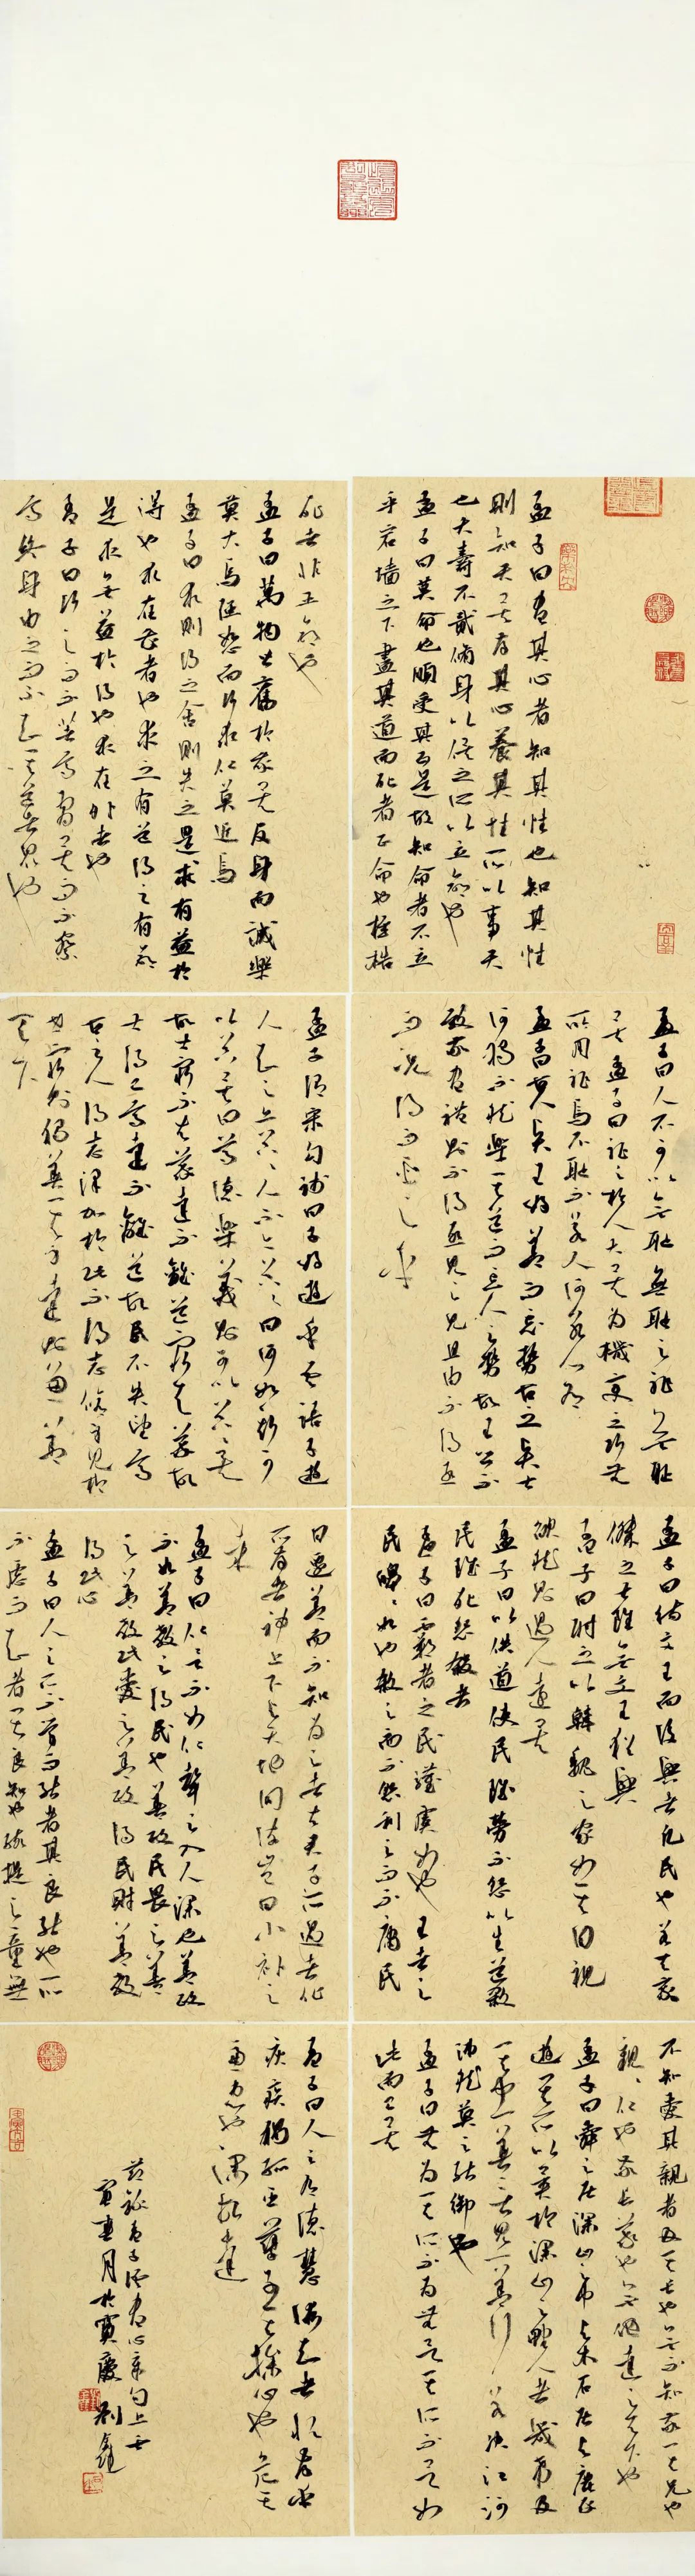 孟子曰盡其心者知其性也知其性
則知天矣存其心養其性所以事天
也夭壽不貳修身以俟之所以立命也
孟子曰莫非命也順受其正是故知命者不立
乎岩墻之下盡其道而死者正命也桎梏
死者非正命也
孟子曰萬物皆備於我矣反身而誠樂
莫大焉强恕而行求仁莫近焉
孟子曰求則得之舍則失之是求有益於
得也求在我者也求之有道得之有命
是求無益於得也求在外者也
孟子曰行之而不著焉習矣而不察
焉終身由之而不知其道者眾也
孟子曰人不可以無恥無恥之恥無恥
矣孟子曰恥之於人大矣為機變之巧者無
所用恥焉不恥不若人何若人有
孟子曰古之賢王好善而忘勢古之賢士
何獨不然樂其道而忘人之勢故王公不
致敬盡禮則不得亟見之見且由不得亟
而況得而臣之乎
孟子謂宋勾踐曰子好遊乎吾語子遊
人知之亦囂囂人不知亦囂囂曰何如斯可
以囂囂矣曰尊德樂義則可以囂囂矣
故士窮不失義達不離道窮不失義故
士得己焉達不離道故民不失望焉
古之人得志澤加於民不得志修身見於
世窮則獨善其身達則兼善
天下
孟子曰待文王而後興者凡民也若夫豪
傑之士雖無文王猶興
孟子曰附之以韓魏之家如其自視
欿然則過人遠矣
孟子曰以佚道使民雖勞不怨以生道殺
民雖死不怨殺者
孟子曰霸者之民驩虞如也王者之
民皞皞如也殺之而不怨利之而不庸民
日遷善而不知為之者夫君子所過者化
所存者神上下與天地同流豈曰小補之
哉
孟子曰仁言不如仁聲之入人深也善政
不如善教之得民也善政民畏之善
教民愛之善政得民財善教
得民心
孟子曰人之所不學而能者其良能也所
不慮而知者其良知也孩提之童無
不知愛其親者及其長也無不知敬其兄也
親親仁也敬長義也無他達之天下也
孟子曰舜之居深山之中與木石居與鹿豕
遊其所以異於深山之野人者幾希及
其聞一善言見一善行若決江河
沛然莫之能禦也
孟子曰無為其所不為無欲其所不欲如
此而已矣
孟子曰人之有德慧術知者恒存乎
疢疾獨孤臣孽子其操心也危其
慮患也深故達
孟子盡心章句上
寅 月於寶慶 劉鑫